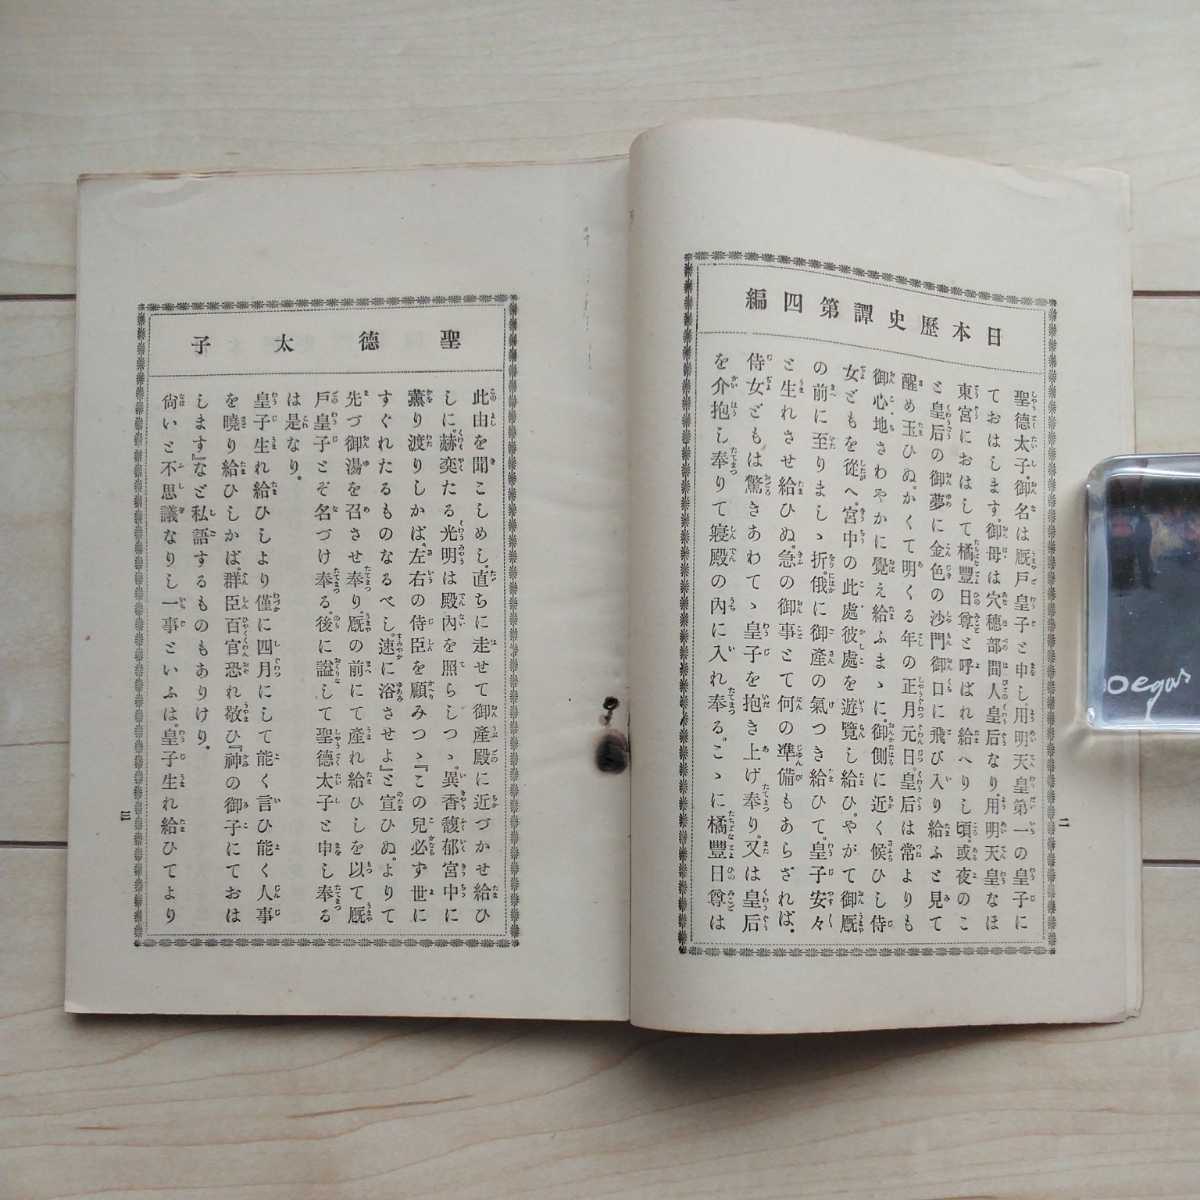 日本歴史譚第四編
聖德太子。御名は厩戸皇子と申し用明天皇第一の皇子に
ておはします。御母は穴穗部間人皇后なり。用明天皇なほ
東宮におはして橘豐日尊と呼ばれ給へりし頃。或夜のこ
と皇后の御夢に金色の沙門御口に飛び入り給ふと見て
醒め玉ひぬ。かくて明くる年の正月元日。皇后は常よりも
御心地さわやかに覺え給ふまゝに。御側に近く候ひし侍
女どもを從へ宮中の此處彼處を遊覽し給ひ。やがて御厩
の前に至りましゝ折。俄に御產の氣つき給ひて。皇子安々
と生れさせ給ひぬ。急の御事とて何の準備もあらざれば、
侍女ども。は驚きあわてゝ皇子を抱き上げ奉り。又は皇后
を介抱し奉りて寢殿の內に入れ奉る。こゝに橘豐日尊は
二
聖德太子
此由を聞こしめし。直ちに走せて御產殿に近づかせ給ひ
しに。赫奕たる光明は殿內を照らしつゝ。異香馥郁宮中に
薰り渡りしかば。左右の侍臣を顧みつゝ『この兒必ず世に
すぐれたるものなるべし速に浴させよ』と宣ひぬ。よりて
先づ御湯を召させ奉り厩の前にて產れ給ひしを以て厩
戶皇子とぞ名づけ奉る。後に謚して聖德太子と申し奉る
は是なり。
皇子生れ給ひしより僅に四月にして能く言ひ能く人事
を曉り給ひしかば。群臣百官恐れ敬ひ『神の御子にておは
します』など私語するものもありけり。
尙いと不思議なりし一事といふは。皇子生れ給ひてより
三
oegar